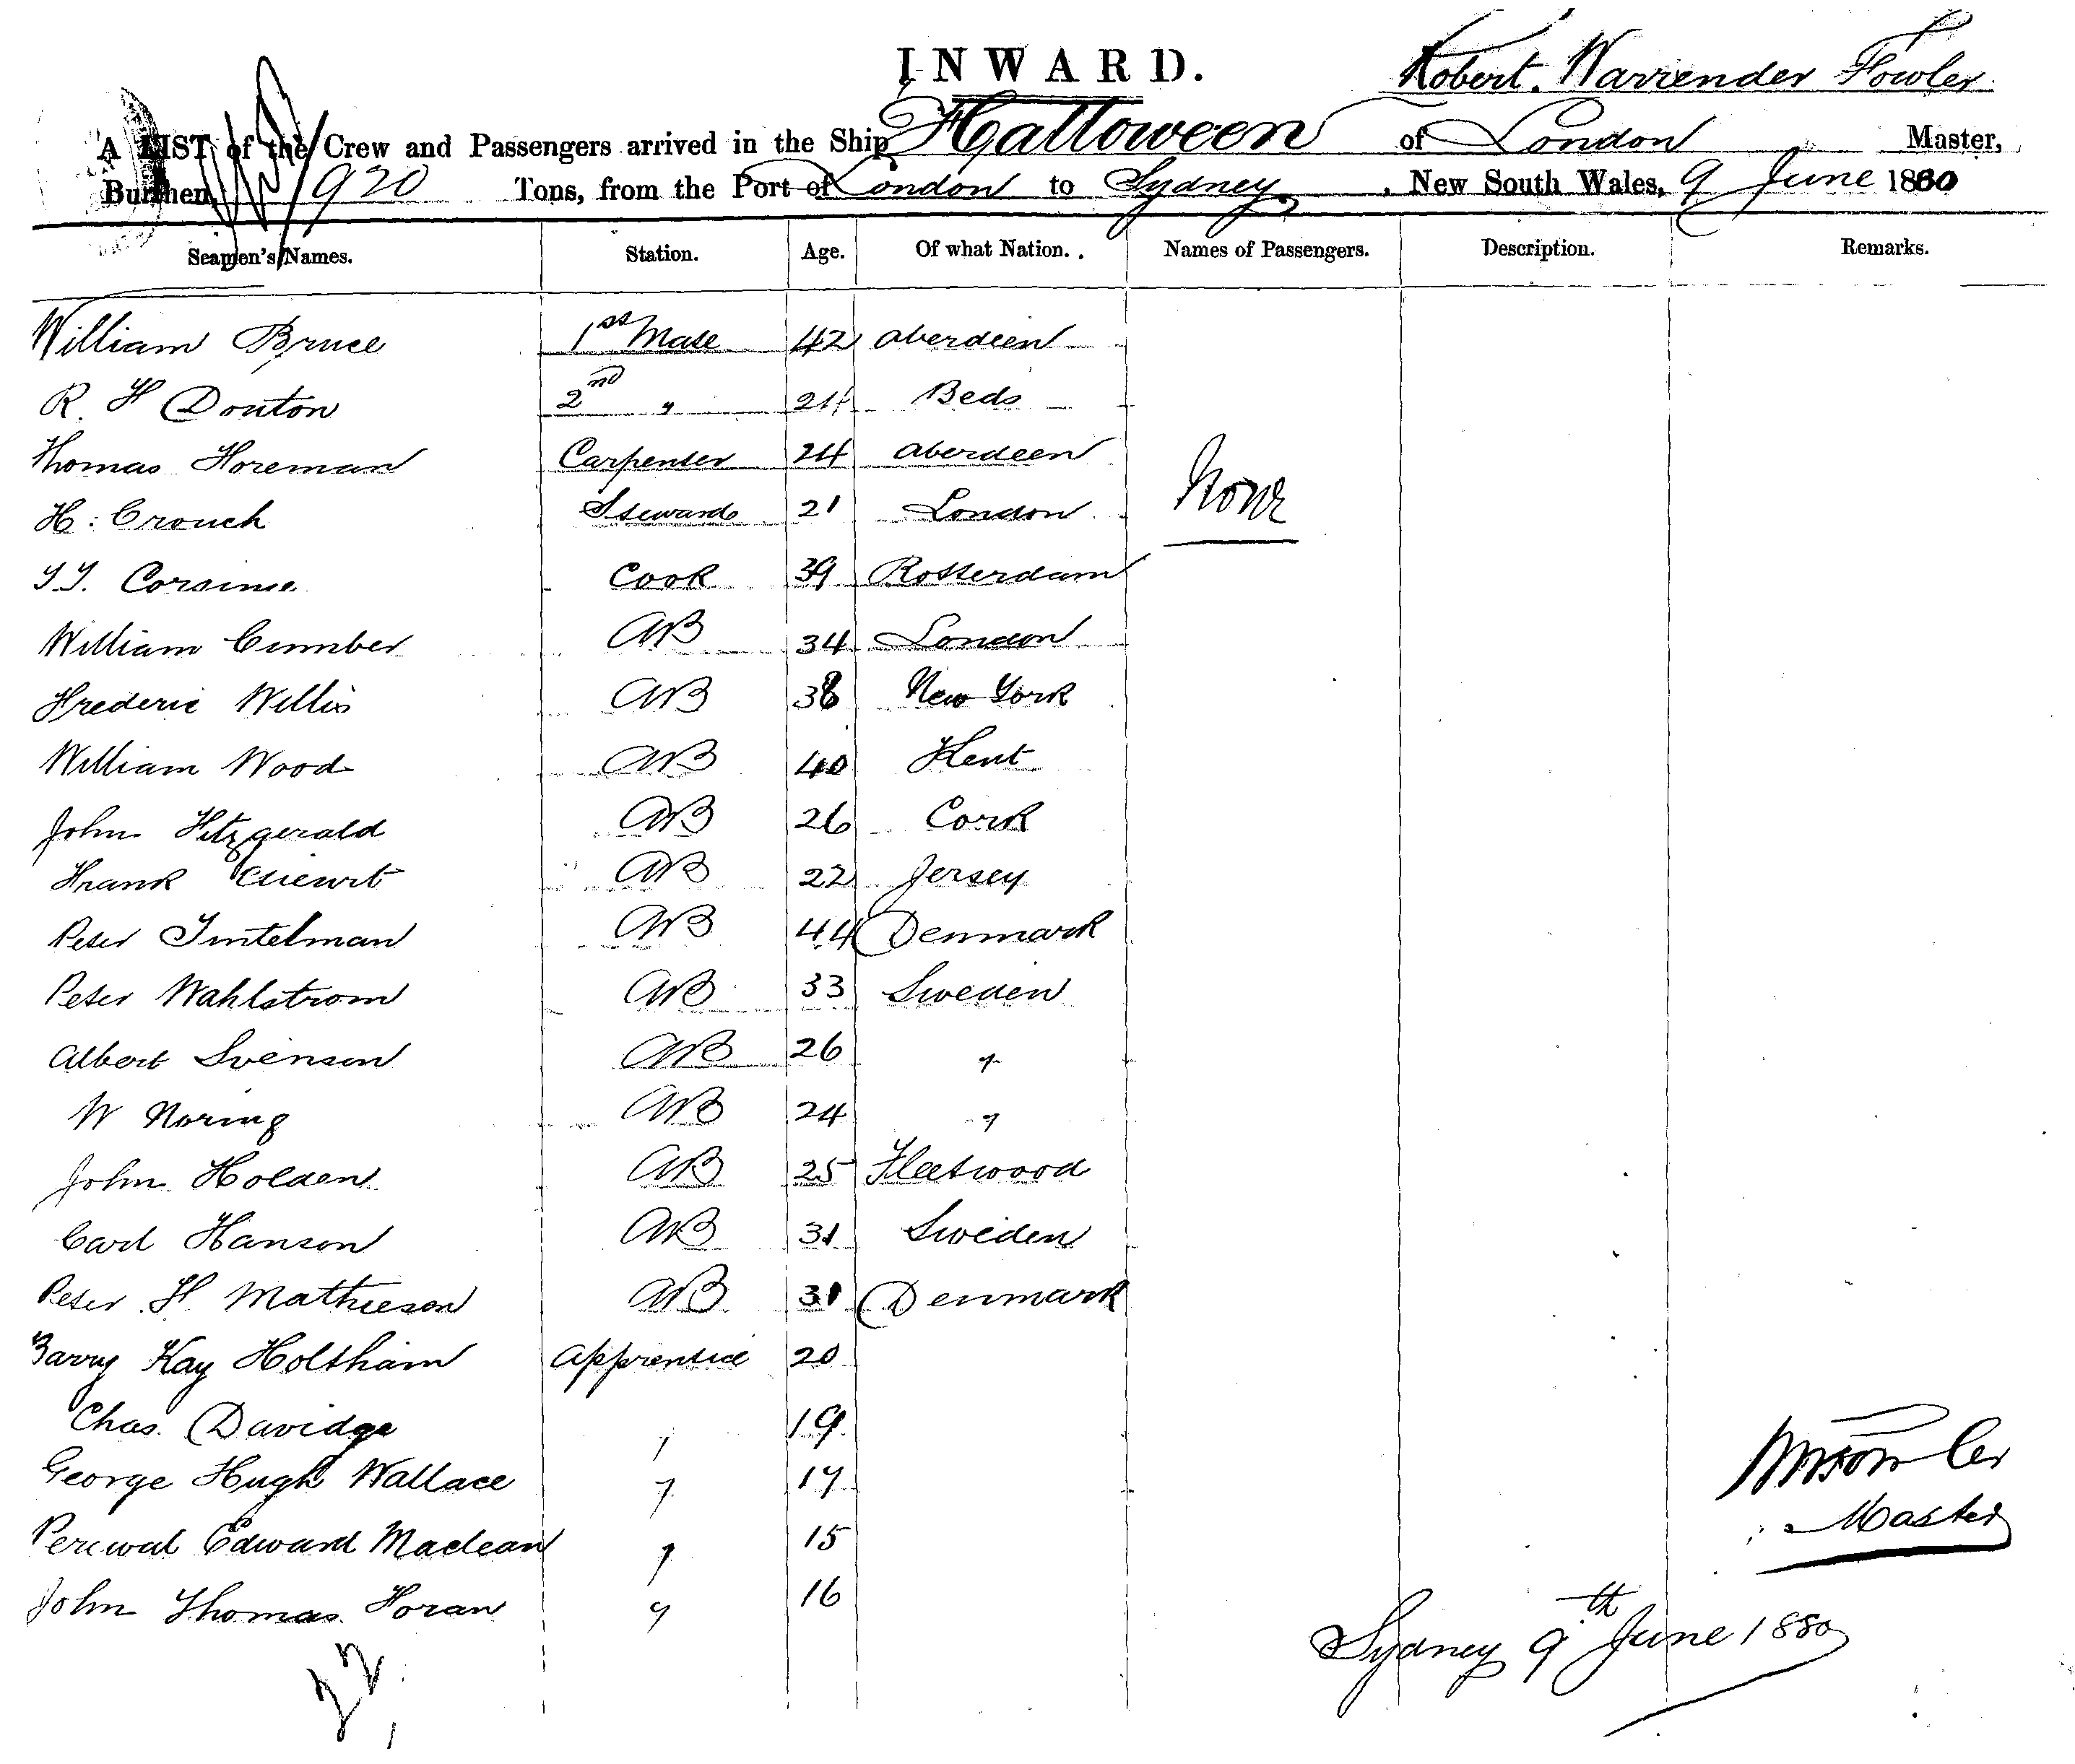 INWARD.
Robert. Warrender Fowler.
A LIST of the Crew and Passengers arrived in the Ship Halloween of London Master,
Burthen, 920 Tons, from the Port of London to Sydney, New South Wales, 9 June 1880
Seamen's Names. Station. Age. Of what Nation. Names of Passengers. Description. Remarks.
William Bruce 1st Mate 42 Aberdeen
R. H Douton 2nd " 24 Beds
Thomas Horeman Carpenter 24 Aberdeen
H. Crouch Steward 21 London None
Cook 39 Rotterdam
William Cumber AB 34 London
Frederic Willis AB 38 New York
William Wood AB 40 Kent
John Fitzgerald AB 26 Cork
Frank AB 22 Jersey
Peter Tintelman AB 44 Denmark
Peter Wahlstrom AB 33 Sweden
Albert Svenson AB 26 "
W Noring AB 24 "
John Holden AB 25 Fleetwood
Carl Hanson AB 31 Sweden
Peter H. Mathieson AB 31 Denmark
Kay Holtham Apprentice 20
Chas. Davidge " 19
George Hugh Wallace " 17
Percival Edward Maclean " 15
John Thomas Horan " 16
22
RW Fowler
Master
Sydney 9th June 1880